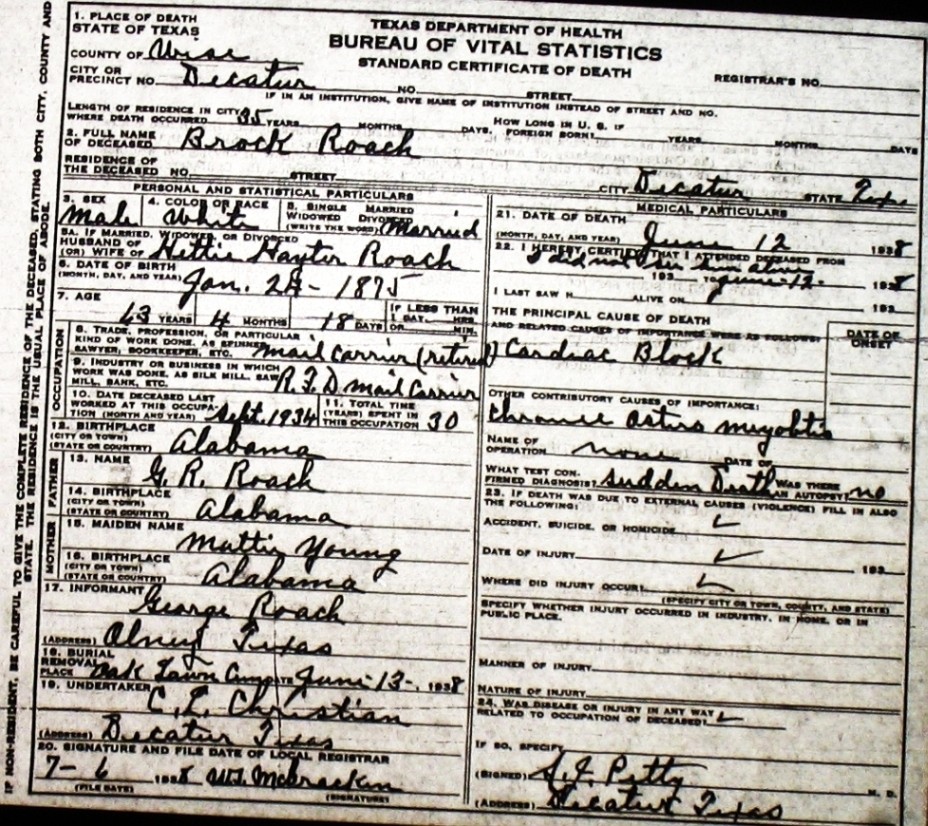 TEXAS DEPARTMENT OF HEALTH
BUREAU OF VITAL STATISTICS
STANDARD CERTIFICATE OF DEATH
1. PLACE OF DEATH
STATE OF TEXAS
COUNTY OF Wise
CITY OR PRECINCT NO. Decatur NO. STREET
REGISTRAR'S NO.
IF IN AN INSTITUTION, GIVE NAME OF INSTITUTION INSTEAD OF STREET AND NO.
LENGTH OF RESIDENCE IN CITY WHERE DEATH OCCURRED 35 YEARS MONTHS DAYS. HOW LONG IN U. S. IF FOREIGN BORN? YEARS MONTHS DAYS
2. FULL NAME OF DECEASED Brock Roach
RESIDENCE OF THE DECEASED NO. STREET CITY Decatur STATE Tex.
PERSONAL AND STATISTICAL PARTICULARS
3. SEX Male 4. COLOR OR RACE White 5. SINGLE MARRIED WIDOWED DIVORCED (WRITE THE WORD) Married
5A. IF MARRIED, WIDOWED, OR DIVORCED
HUSBAND OF (OR) WIFE OF Hettie Roach
6. DATE OF BIRTH (MONTH, DAY, AND YEAR) Jan. - 1875
7. AGE 63 YEARS 4 MONTHS 18 DAYS IF LESS THAN 1 DAY HRS. OR MIN.
OCCUPATION
8. TRADE, PROFESSION, OR PARTICULAR KIND OF WORK DONE, AS SPINNER, SAWYER, BOOKKEEPER, ETC. Mail Carrier (retired)
9. INDUSTRY OR BUSINESS IN WHICH WORK WAS DONE, AS SILK MILL, SAW MILL, BANK, ETC. R.F.D mail Carrier
10. DATE DECEASED LAST WORKED AT THIS OCCUPATION (MONTH AND YEAR) Sept. 1934 11. TOTAL TIME (YEARS) SPENT IN THIS OCCUPATION 30
12. BIRTHPLACE (CITY OR TOWN) (STATE OR COUNTRY) Alabama
FATHER
13. NAME G. R. Roach
14. BIRTHPLACE (CITY OR TOWN) (STATE OR COUNTRY) Alabama
MOTHER
15. MAIDEN NAME Mattie Young
16. BIRTHPLACE (CITY OR TOWN) (STATE OR COUNTRY) Alabama
17. INFORMANT George Roach
(ADDRESS) Olney Texas
18. BURIAL REMOVAL
PLACE Oak Lawn DATE June-13-, 1938
19. UNDERTAKER C. L. Christian
(ADDRESS) Decatur Texas
20. SIGNATURE AND FILE DATE OF LOCAL REGISTRAR
7-6 1938
(FILE DATE) (SIGNATURE)
MEDICAL PARTICULARS
21. DATE OF DEATH
(MONTH, DAY, AND YEAR) June 12 1938
22. I HEREBY CERTIFY THAT I ATTENDED DECEASED FROM
I did not see him alive
193 June-12- 1938
I LAST SAW H ALIVE ON 193
THE PRINCIPAL CAUSE OF DEATH AND RELATED CAUSES OF IMPORTANCE WERE AS FOLLOWS: DATE OF ONSET
Cardiac Block
OTHER CONTRIBUTORY CAUSES OF IMPORTANCE:
Chronic
NAME OF OPERATION none DATE OF
WHAT TEST CONFIRMED DIAGNOSIS? Sudden Death WAS THERE AN AUTOPSY? no
23. IF DEATH WAS DUE TO EXTERNAL CAUSES (VIOLENCE) FILL IN ALSO THE FOLLOWING:
ACCIDENT, SUICIDE, OR HOMICIDE ✓
DATE OF INJURY ✓ 193
WHERE DID INJURY OCCUR? ✓
(SPECIFY CITY OR TOWN, COUNTY, AND STATE)
SPECIFY WHETHER INJURY OCCURRED IN INDUSTRY, IN HOME, OR IN PUBLIC PLACE.
MANNER OF INJURY
NATURE OF INJURY
24. WAS DISEASE OR INJURY IN ANY WAY RELATED TO OCCUPATION OF DECEASED? ✓
IF SO, SPECIFY
(SIGNED) Petty M. D.
(ADDRESS) Decatur Texas
IF NON-RESIDENT, BE CAREFUL TO GIVE THE COMPLETE RESIDENCE OF THE DECEASED, STATING BOTH CITY, COUNTY AND STATE. THE RESIDENCE IS THE USUAL PLACE OF ABODE.